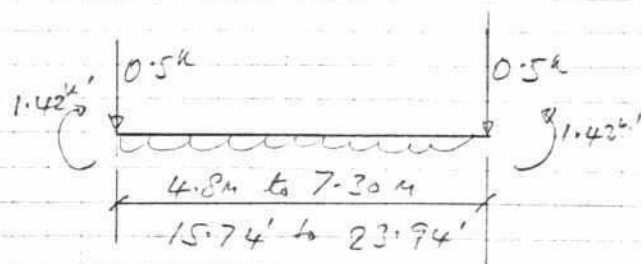 0.5k
0.5k
1.42k'
1.42k'
4.8m to 7.30m
15.74' to 23.94'